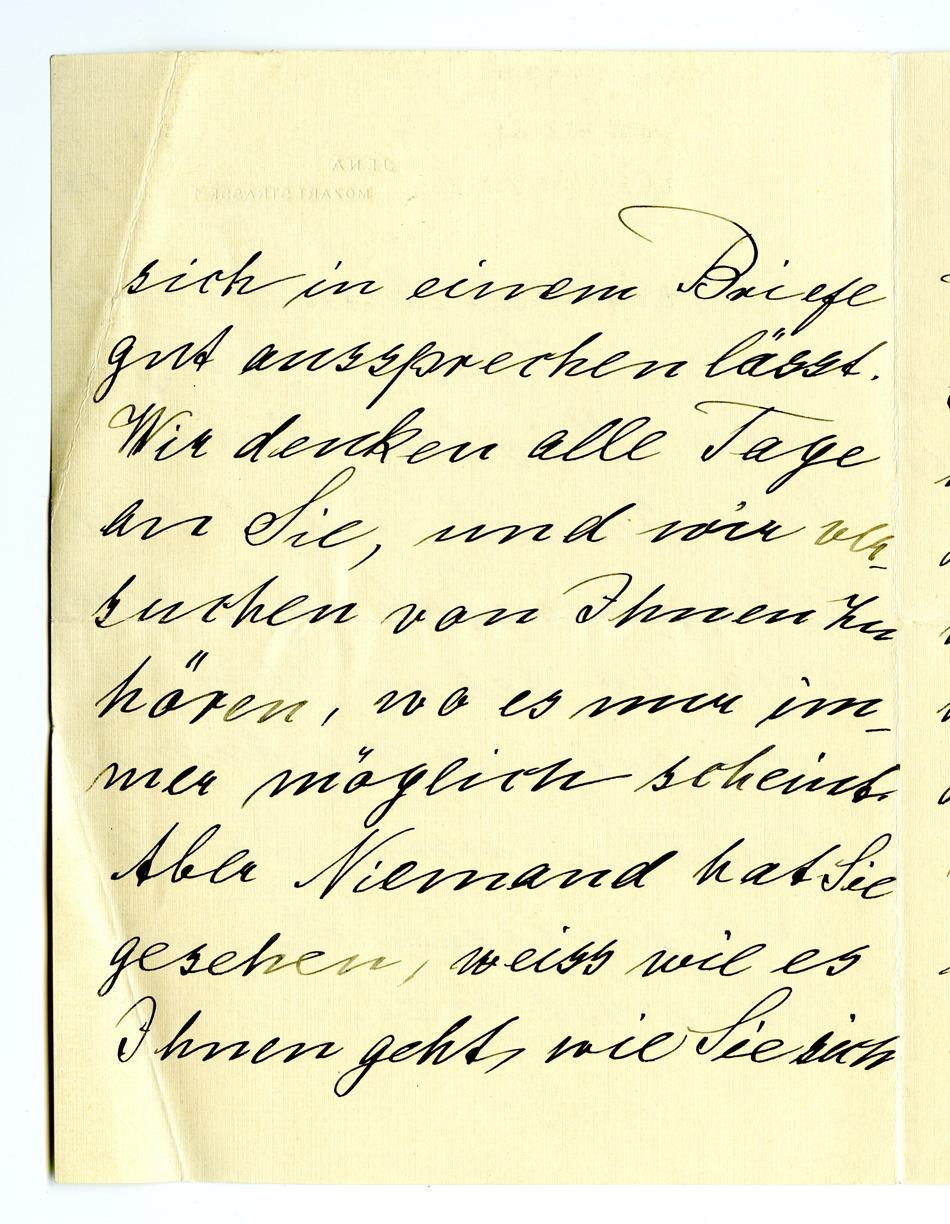 JENA
MOZARTSTRASSE 1
sich in einem Briefe
gut aussprechen lässt.
Wir denken alle Tage
an Sie, und wir ver-
suchen von Ihnen zu
hören, wo es nur im-
mer möglich scheint.
Aber Niemand hat Sie
gesehen, weiss wie es
Ihnen geht, wie Sie sich